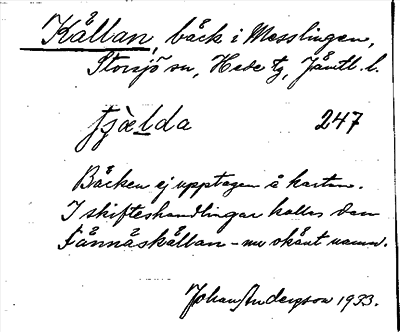 Källan, bäck i Messlingen,
Storsjö sn, Hede tg, Jämtl. l.
247
Bäcken ej upptagen å kartan.
I skifteshandlingar kallas den
Fännåskällan - nu okänt namn.
Johan Anderson 1933.